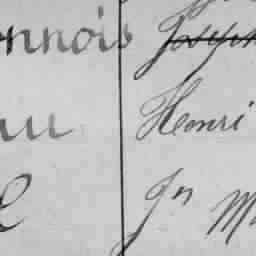 onnois Joseph
au Henri
Jn M